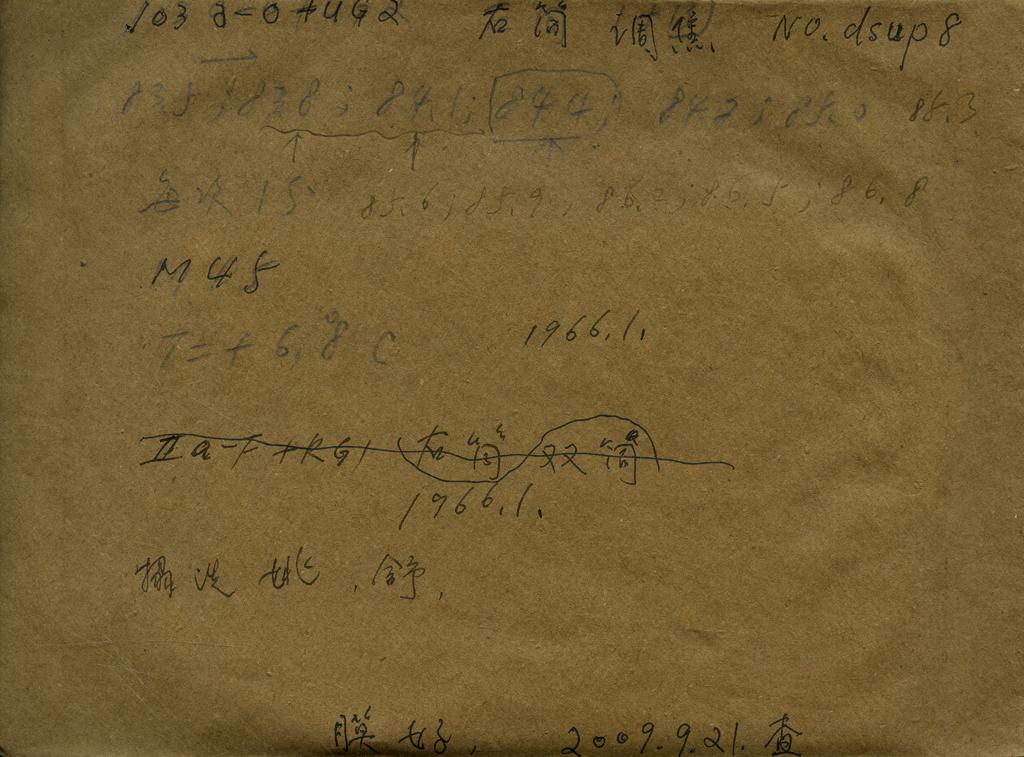 103a-O+UG2 右筒 调焦 NO. dsup8
83.5; 83.8; 84.1; 84.4; 84.7; 85.0 85.3
每次 15ˢ 85.6; 85.9; 86.2; 86.5; 86.8
M45
T=+6.8°C 1966.1.
IIa-F+RG1 (右筒 双筒)
1966.1.
摄洗 姚、舒.
膜好, 2009.9.21.查